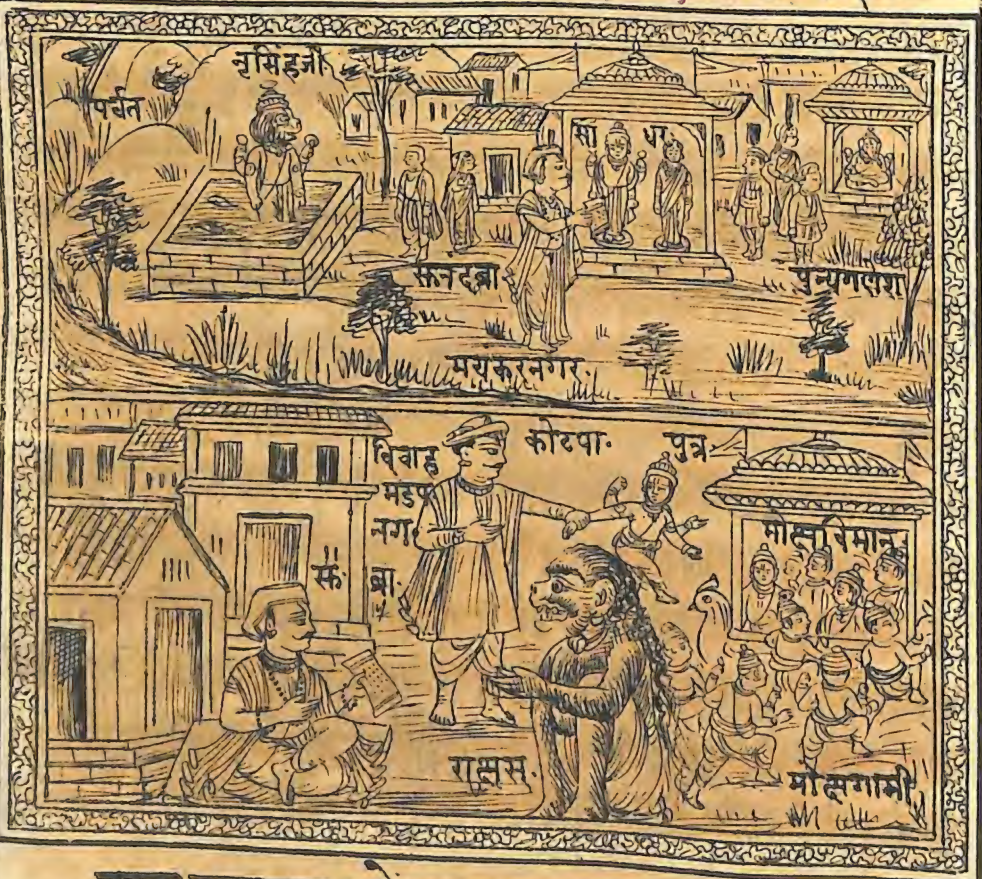 नृसिंहजी
पर्वत
मा धा.
सनंदब्रा
पुन्यगणेश
मयकरनगर.
विवाह
मंडप
नगर
कोटपा.
पुत्र
मोक्षविमान.
स्नं ब्रा.
राक्षस.
मोक्षगामी